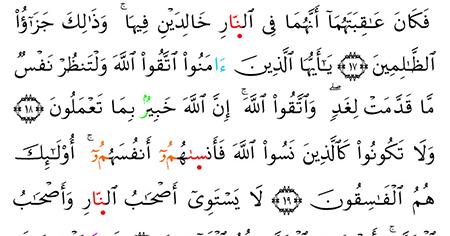 فَكَانَ عَٰقِبَتَهُمَآ أَنَّهُمَا فِى ٱلنَّارِ خَٰلِدَيْنِ فِيهَا ۚ وَذَٰلِكَ جَزَٰٓؤُا۟
ٱلظَّٰلِمِينَ ۝١٧ يَٰٓأَيُّهَا ٱلَّذِينَ ءَامَنُوا۟ ٱتَّقُوا۟ ٱللَّهَ وَلْتَنظُرْ نَفْسٌ
مَّا قَدَّمَتْ لِغَدٍ ۖ وَٱتَّقُوا۟ ٱللَّهَ ۚ إِنَّ ٱللَّهَ خَبِيرٌۢ بِمَا تَعْمَلُونَ ۝١٨
وَلَا تَكُونُوا۟ كَٱلَّذِينَ نَسُوا۟ ٱللَّهَ فَأَنسَىٰهُمُۥٓ أَنفُسَهُمُۥٓ ۚ أُو۟لَٰٓئِكَ
هُمُ ٱلْفَٰسِقُونَ ۝١٩ لَا يَسْتَوِىٓ أَصْحَٰبُ ٱلنَّارِ وَأَصْحَٰبُ